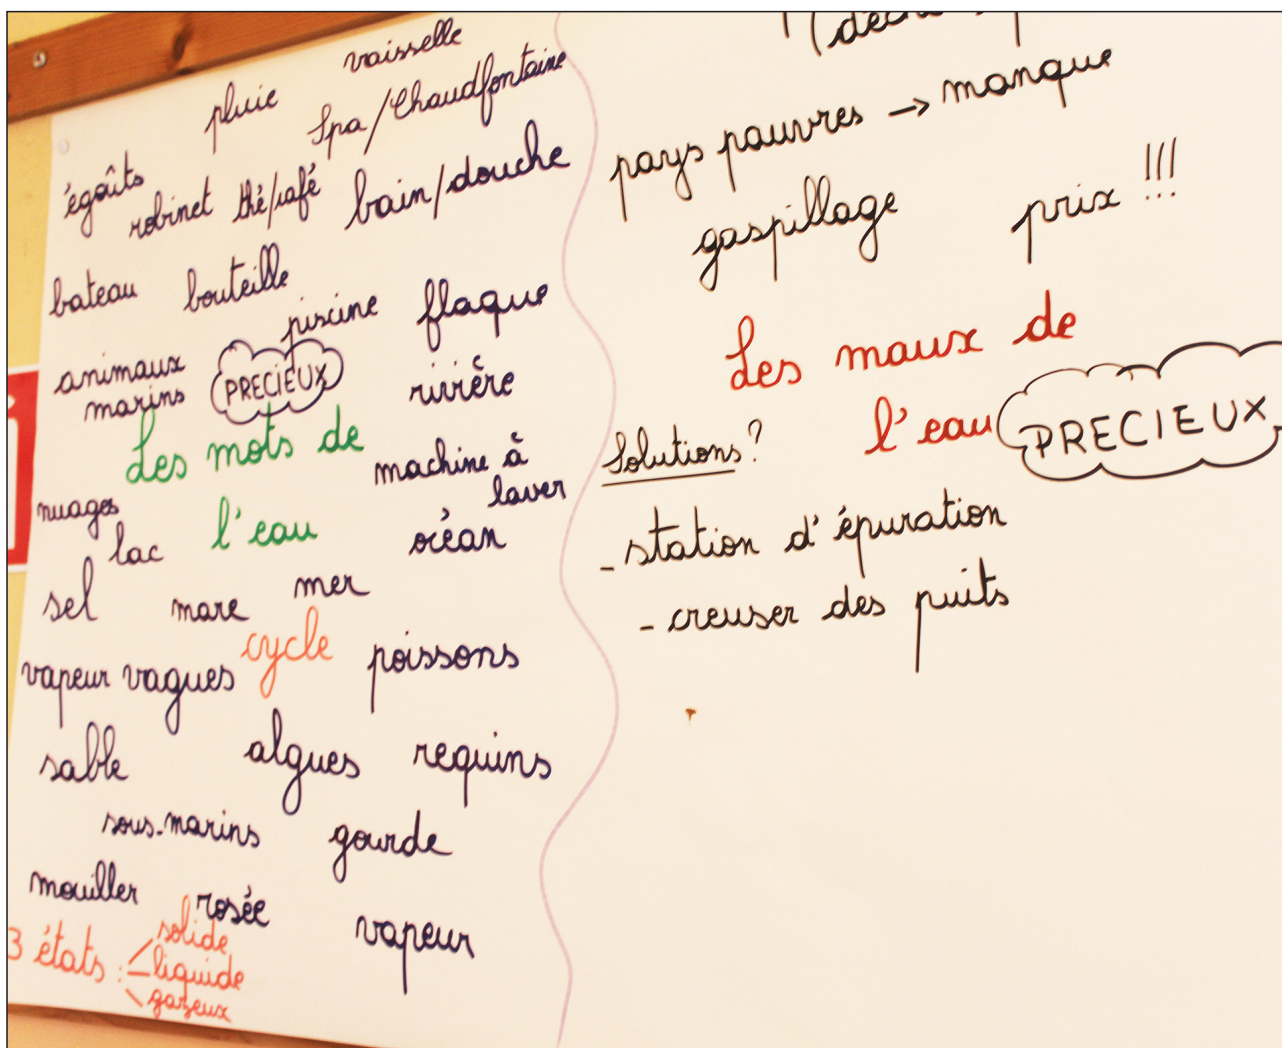 vaisselle
pluie
Spa/Chaudfontaine
égoûts
robinet thé/café bain/douche
bateau bouteille
piscine flaque
animaux
marins
PRECIEUX
rivière
Les mots de
l'eau
machine à
laver
nuages
lac
océan
sel mare mer
cycle
vapeur vagues poissons
sable algues requins
sous-marins gourde
mouiller rosée vapeur
3 états :
solide
liquide
gazeux
pays pauvres → manque
gaspillage prix !!!
Les maux de
l'eau
PRECIEUX
Solutions ?
- station d'épuration
- creuser des puits